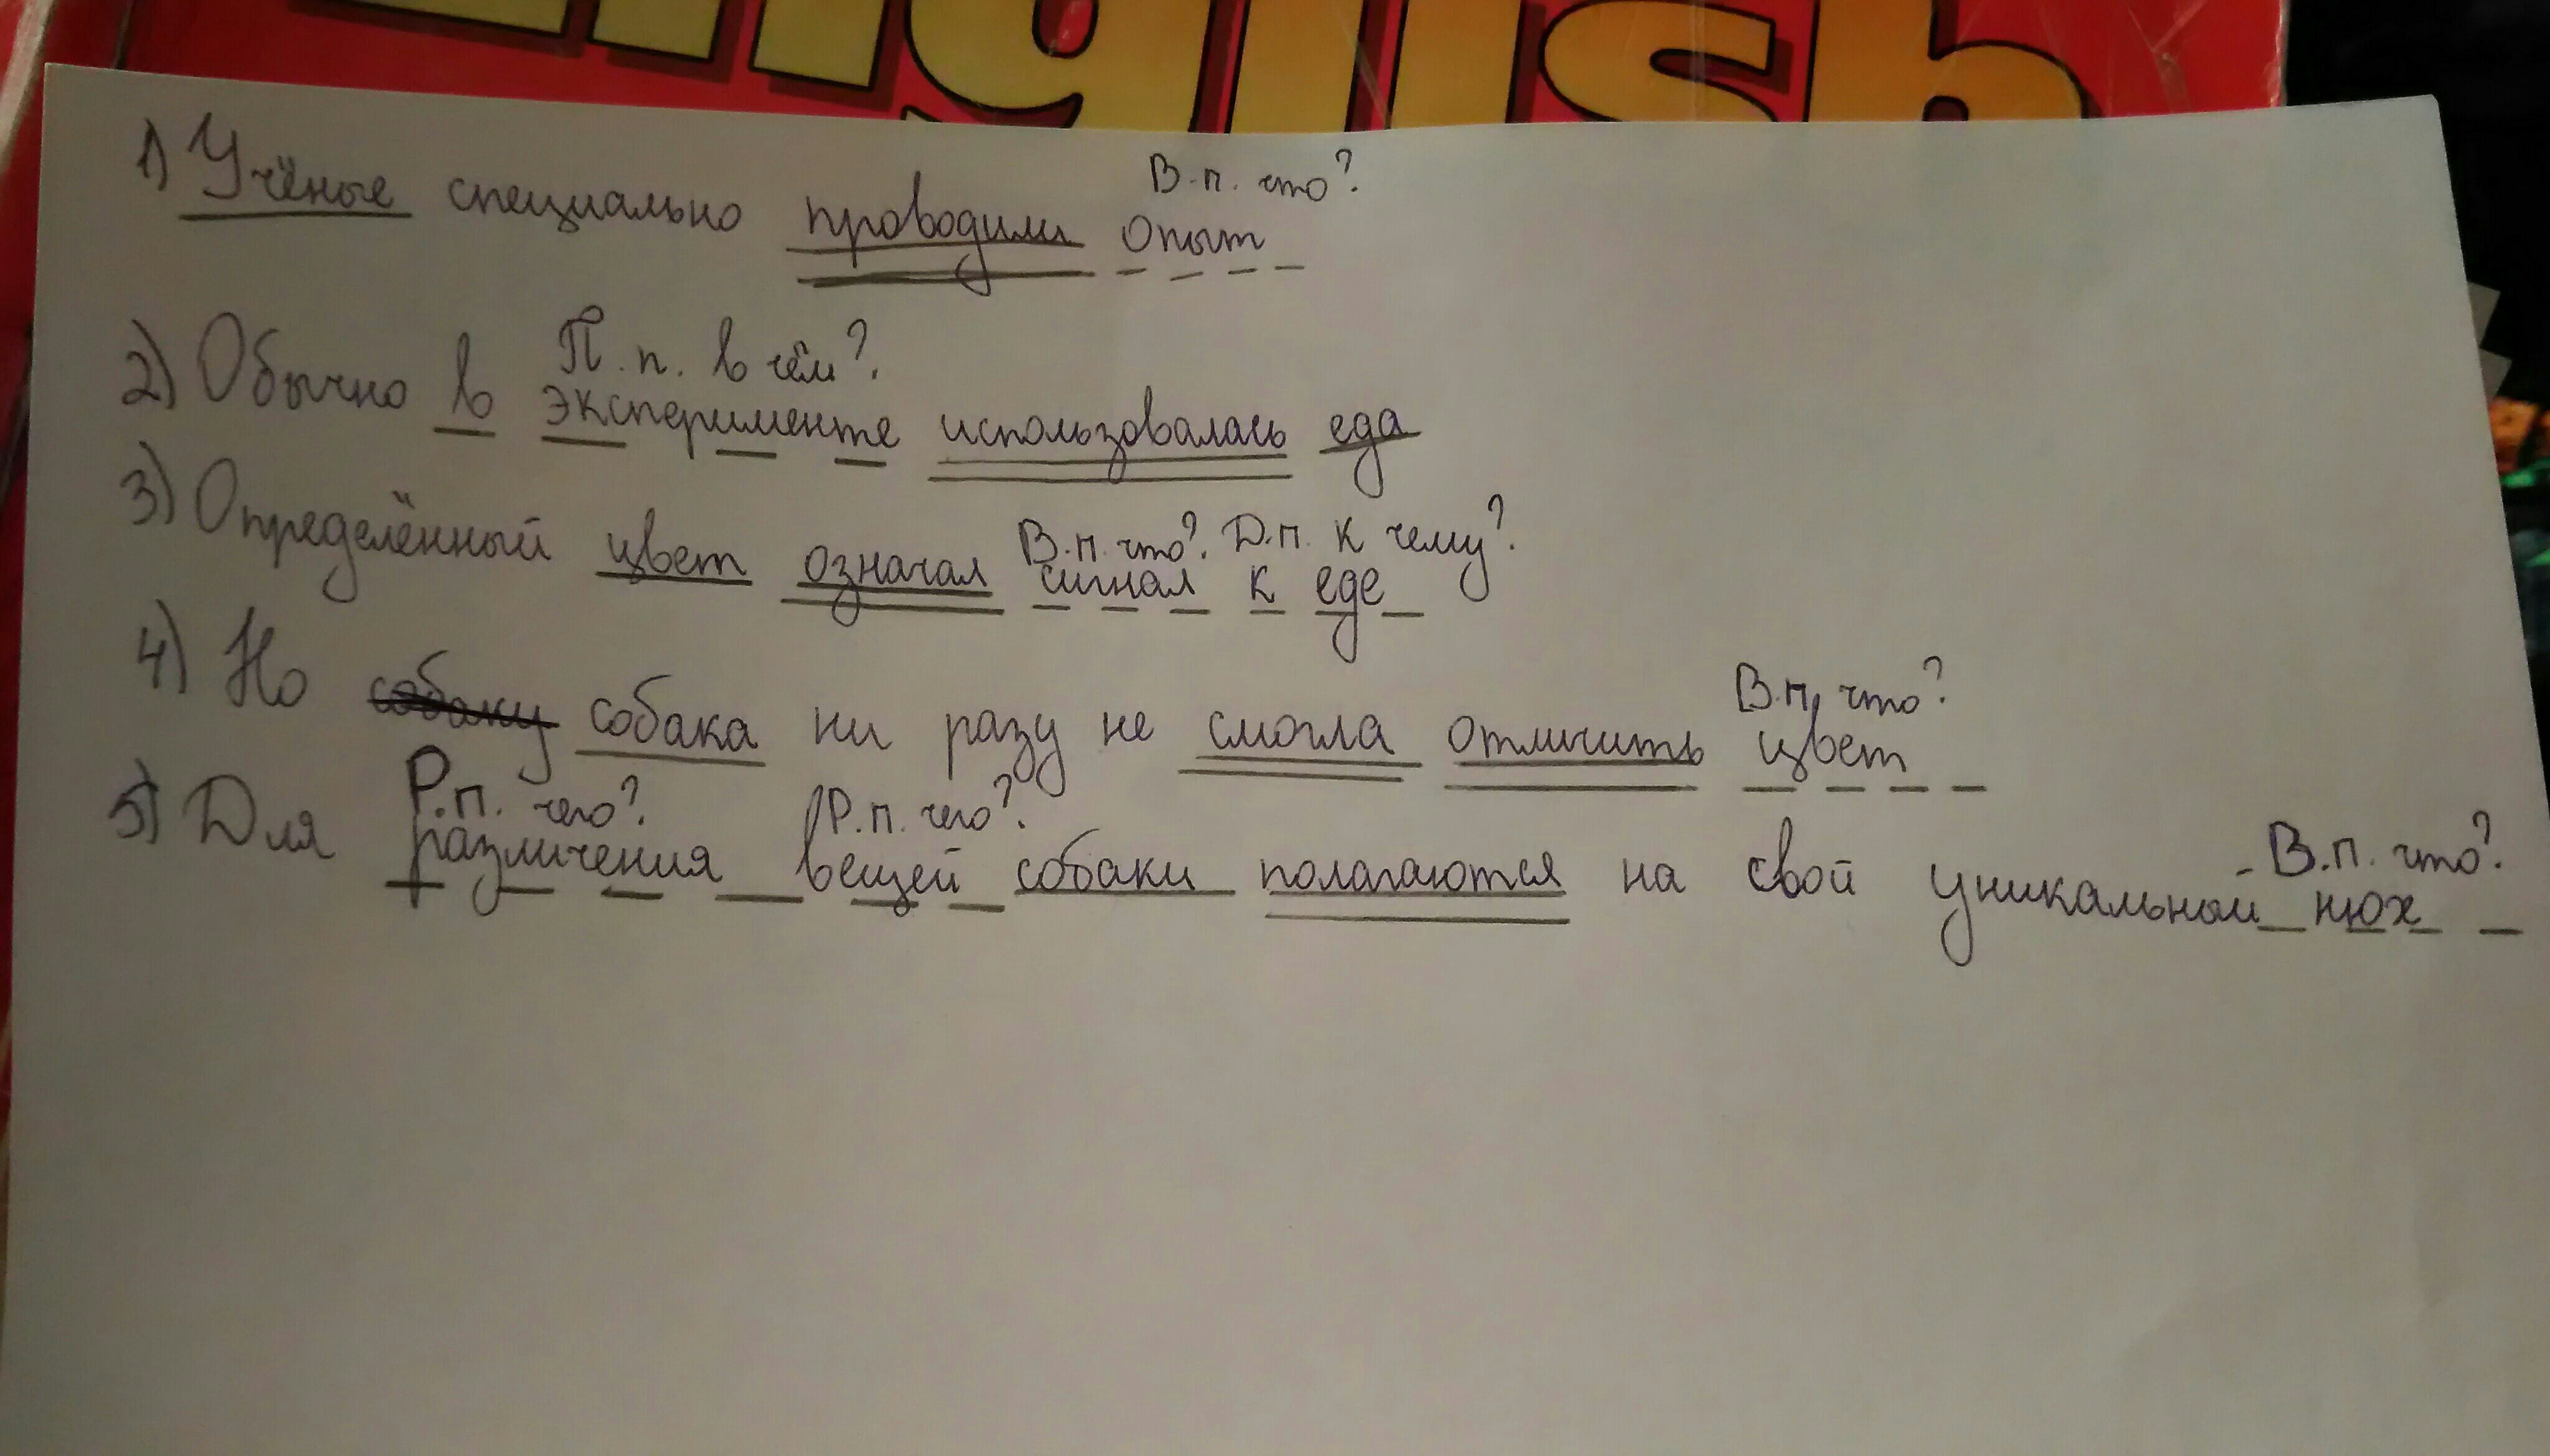 English
В.п. что?
1) Учёные специально проводили опыт
П.п. в чём?
2) Обычно в эксперименте использовалась еда
В.п. что? Д.п. к чему?
3) Определённый цвет означал сигнал к еде
В.п. что?
4) Но собаку собака ни разу не смогла отличить цвет
Р.п. чего? Р.п. чего? В.п. что?
5) Для различения вещей собаки полагаются на свой уникальный нюх